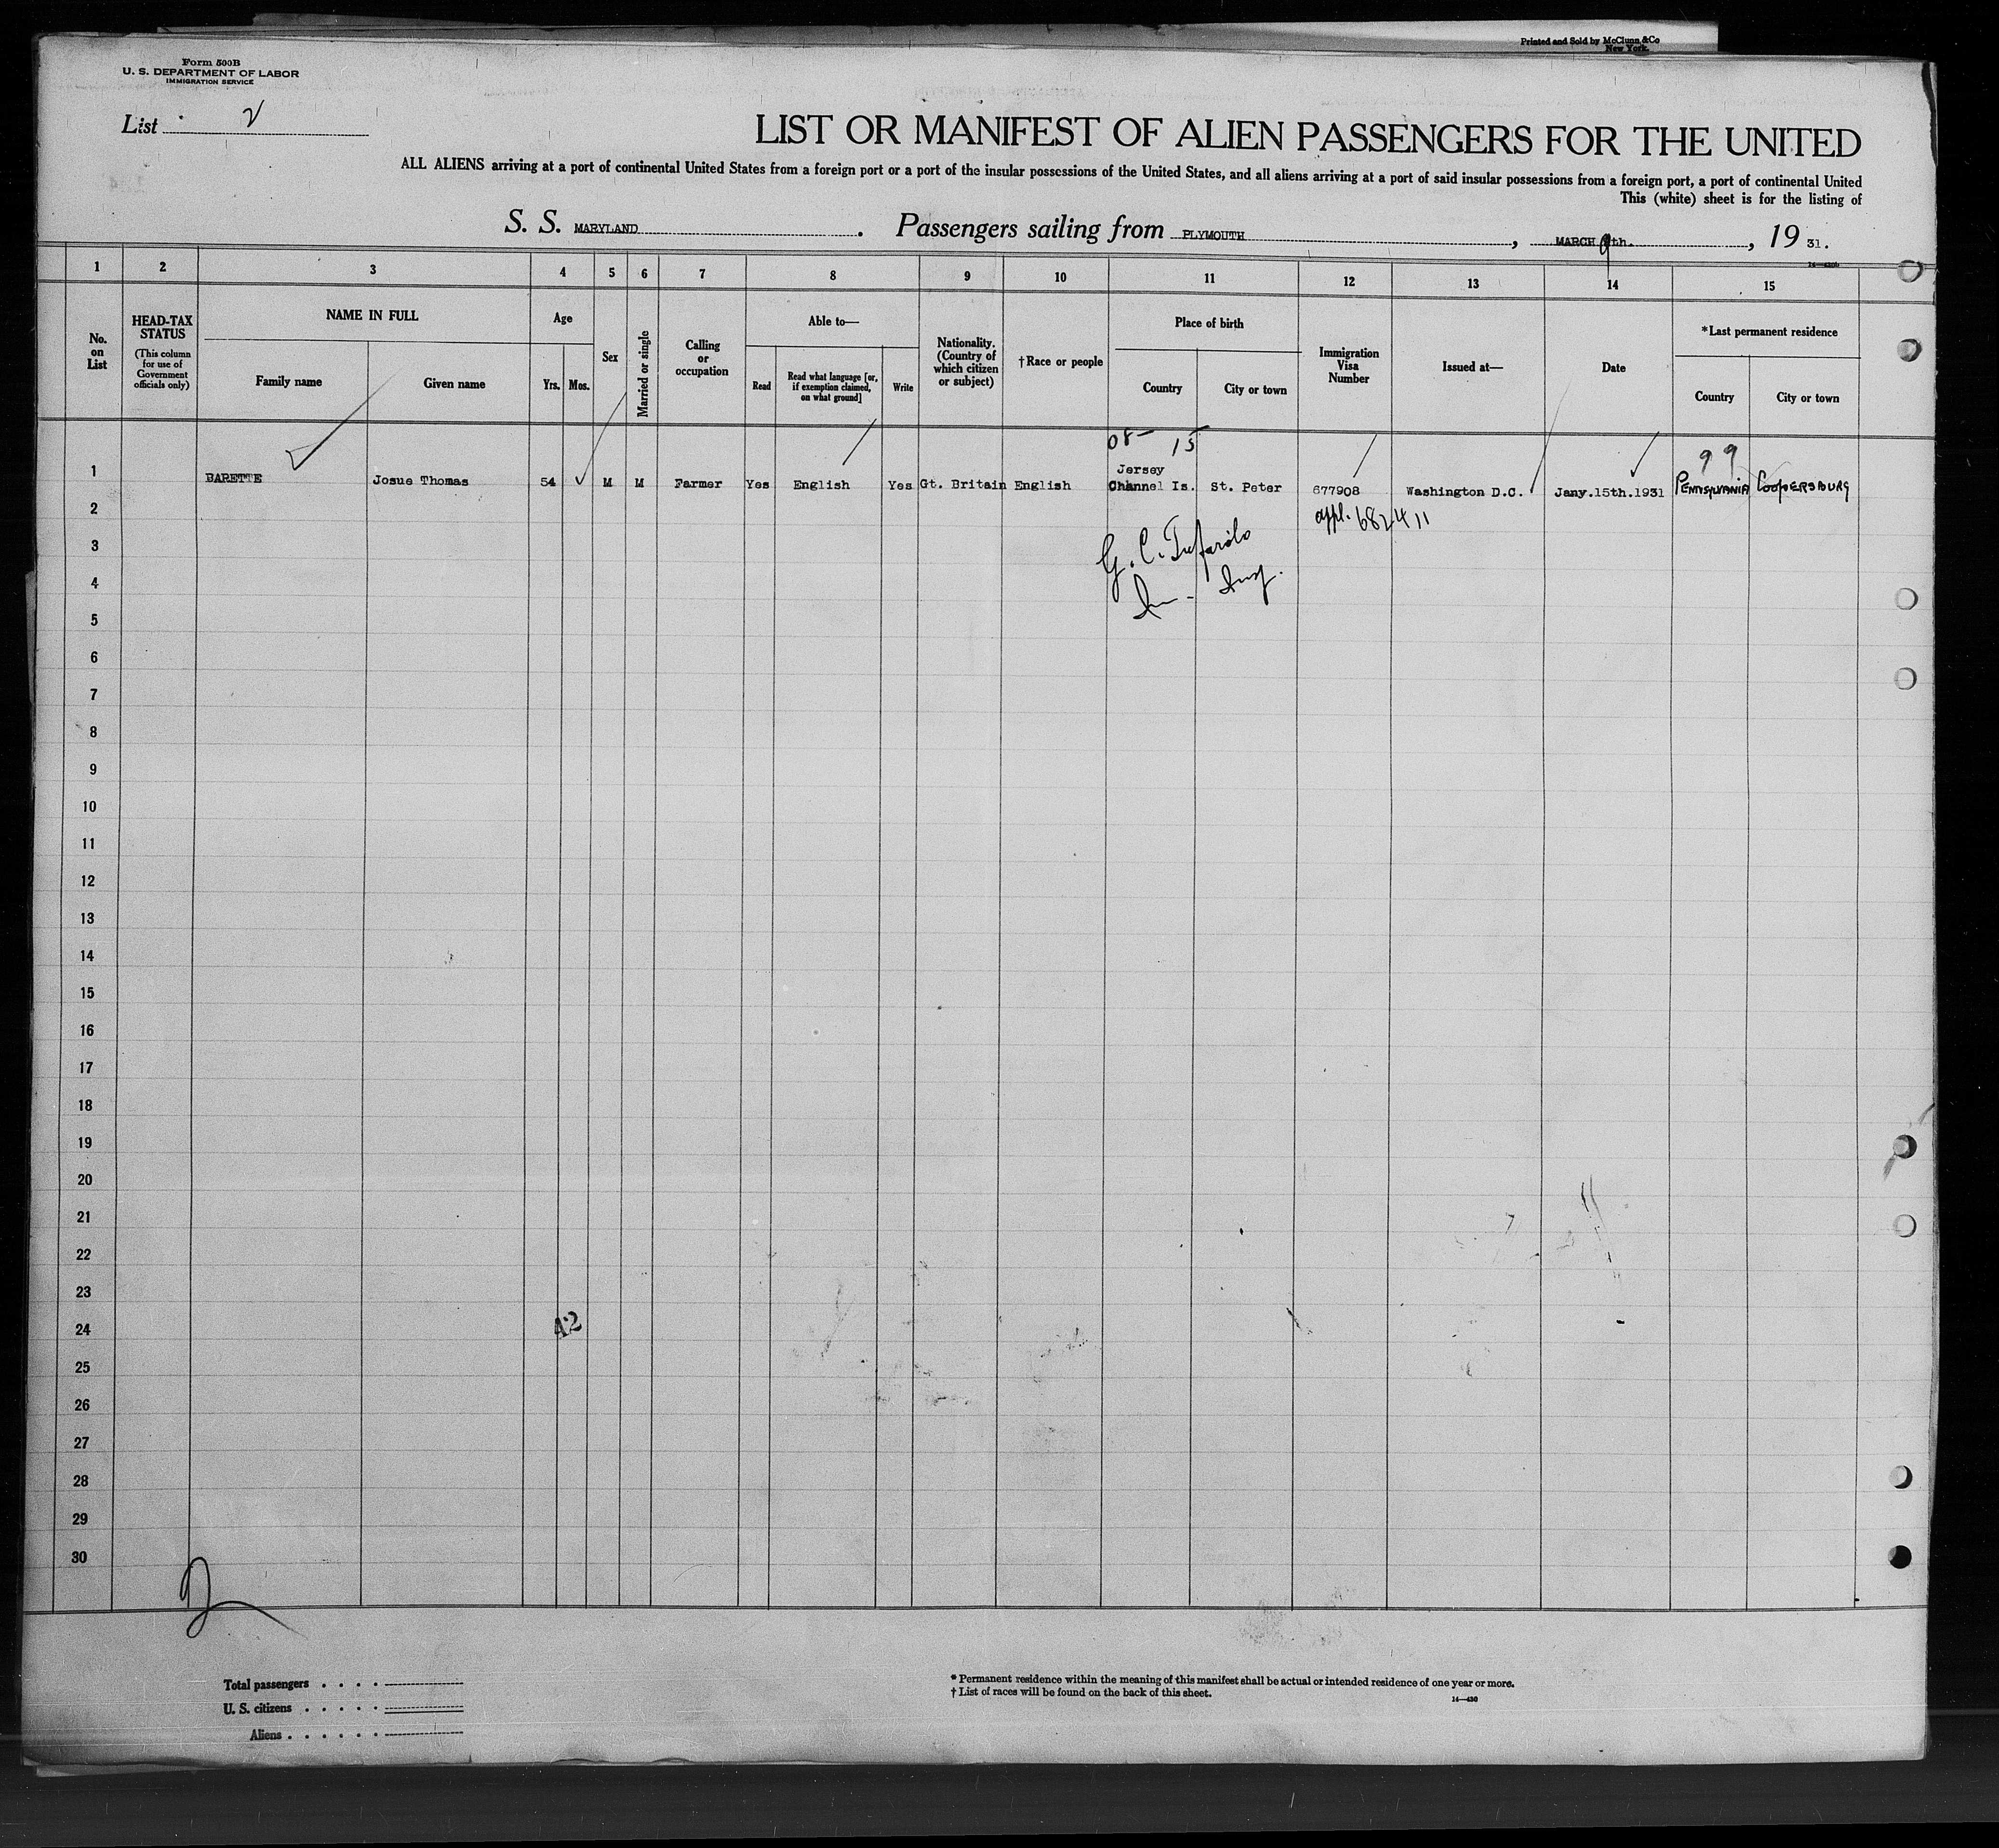 Printed and Sold by McClunn & Co
New York.
Form 500B
U. S. DEPARTMENT OF LABOR
IMMIGRATION SERVICE
List 2
LIST OR MANIFEST OF ALIEN PASSENGERS FOR THE UNITED
ALL ALIENS arriving at a port of continental United States from a foreign port or a port of the insular possessions of the United States, and all aliens arriving at a port of said insular possessions from a foreign port, a port of continental United
This (white) sheet is for the listing of
S. S. MARYLAND. Passengers sailing from PLYMOUTH, MARCH 9th., 19 31.
1 2 3 4 5 6 7 8 9 10 11 12 13 14 15
No. on List
HEAD-TAX STATUS
(This column for use of Government officials only)
NAME IN FULL
Family name
Given name
Age
Yrs.
Mos.
Sex
Married or single
Calling or occupation
Able to—
Read
Read what language [or, if exemption claimed, on what ground]
Write
Nationality. (Country of which citizen or subject)
†Race or people
Place of birth
Country
City or town
Immigration Visa Number
Issued at—
Date
*Last permanent residence
Country
City or town
08— 15
99
1 BARETTE Josue Thomas 54 M M Farmer Yes English Yes Gt. Britain English Jersey Channel Is. St. Peter 677908 Washington D.C. Jany.15th.1931 PENNSYLVANIA COOPERSBURG
appl. 682411
2
3
4
5
6
7
8
9
10
11
12
13
14
15
16
17
18
19
20
21
22
23
24
42
25
26
27
28
29
30
2
Total passengers
U. S. citizens
Aliens
* Permanent residence within the meaning of this manifest shall be actual or intended residence of one year or more.
† List of races will be found on the back of this sheet.
14—430